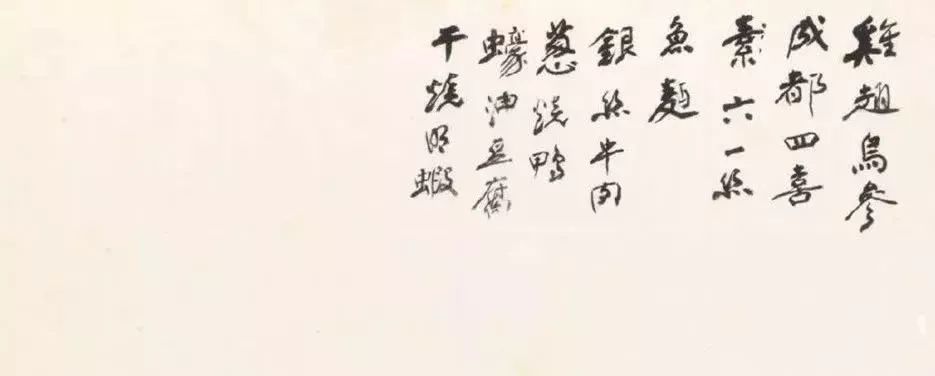 雞翅烏參
成都四喜
素六一絲
魚麵
銀絲牛肉
蔥燒鴨
蠔油豆腐
干燒明蝦